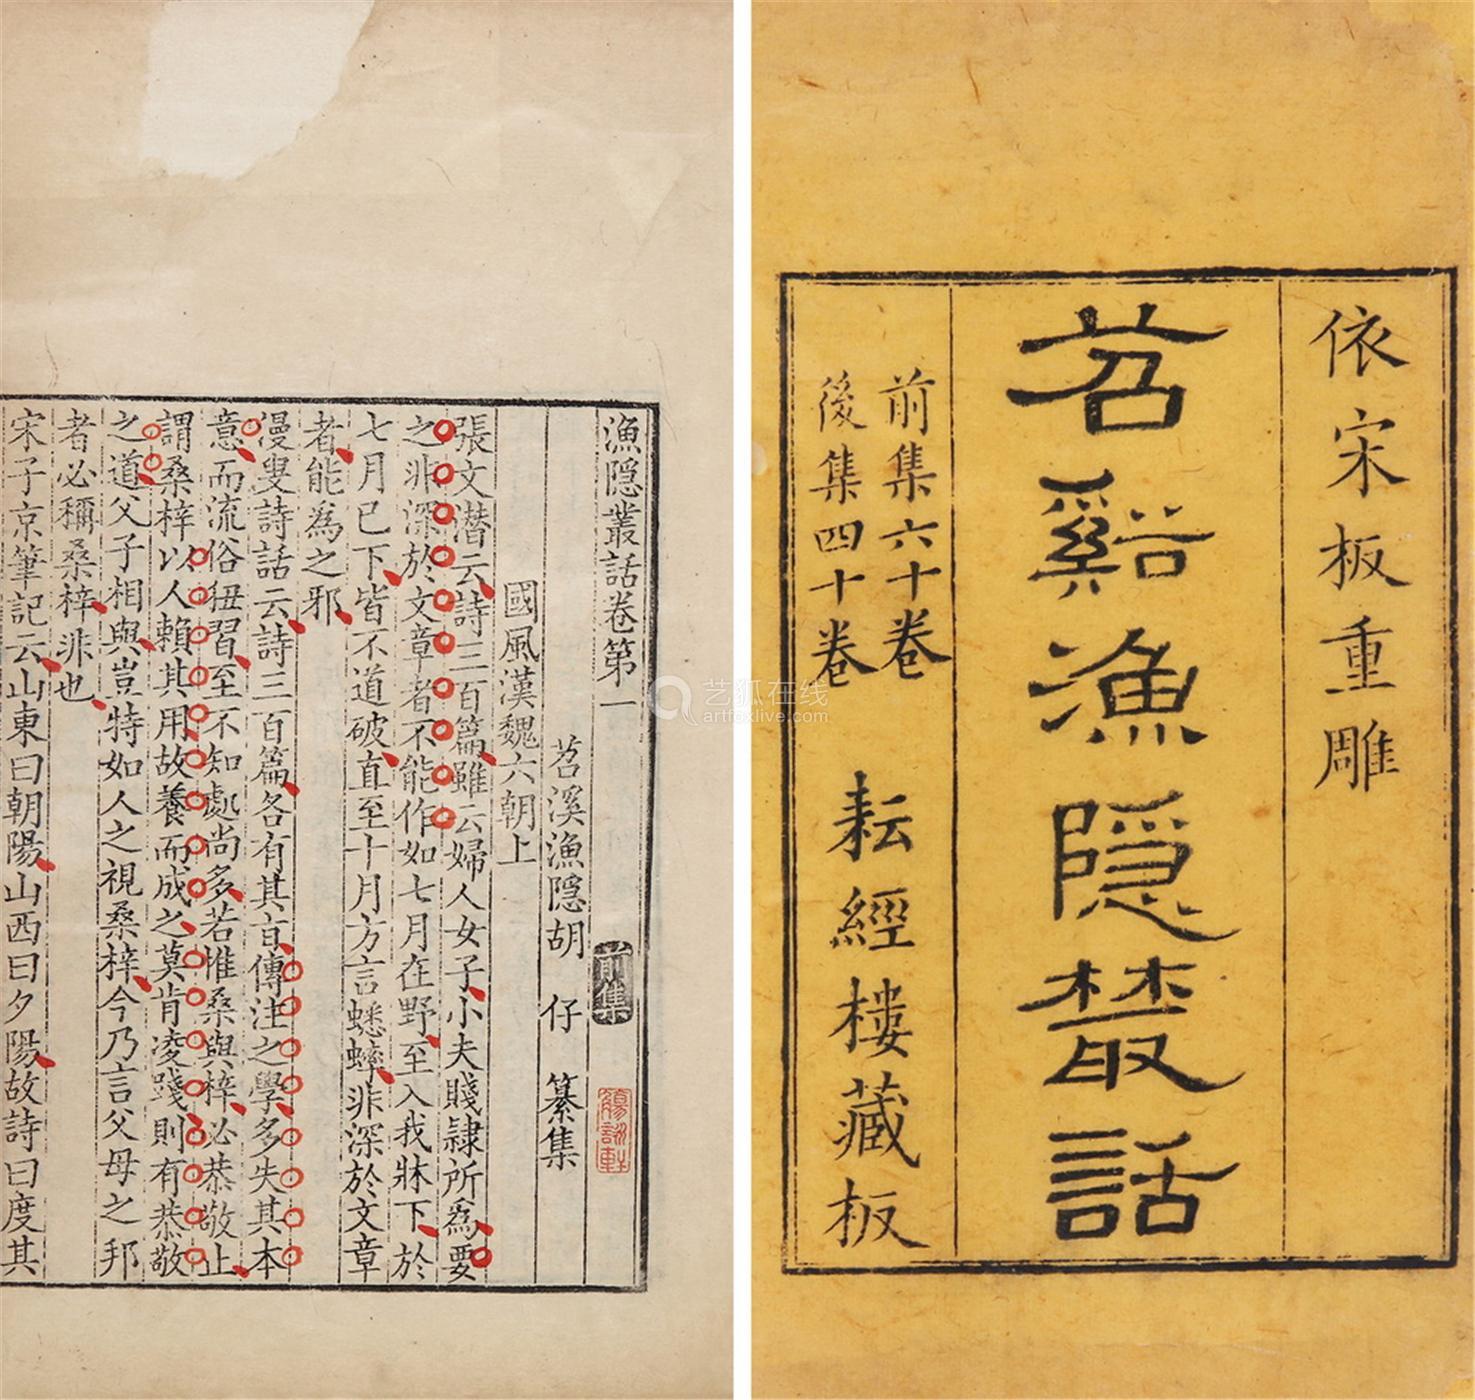 依宋板重雕
苕谿漁隱叢話
前集六十卷
後集四十卷
耘經樓藏板
漁隱叢話卷第一 前集
觴詠軒
苕溪漁隱胡 仔 纂集
國風漢魏六朝上
張文潛云詩三百篇雖云婦人女子小夫賤隷所為要
之非深於文章者不能作如七月在野至入我牀下於
七月已下皆不道破直至十月方言蟋蟀非深於文章
者能為之邪
漫叟詩話云詩三百篇各有其旨傳注之學多失其本
意而流俗狃習至不知處尚多若惟桑與梓必恭敬止
謂桑梓以人賴其用故養而成之莫肯凌踐則有恭敬
之道父子相與豈特如人之視桑梓今乃言父母之邦
者必稱桑梓非也
宋子京筆記云山東曰朝陽山西曰夕陽故詩曰度其
艺狐在线
artfoxlive.com